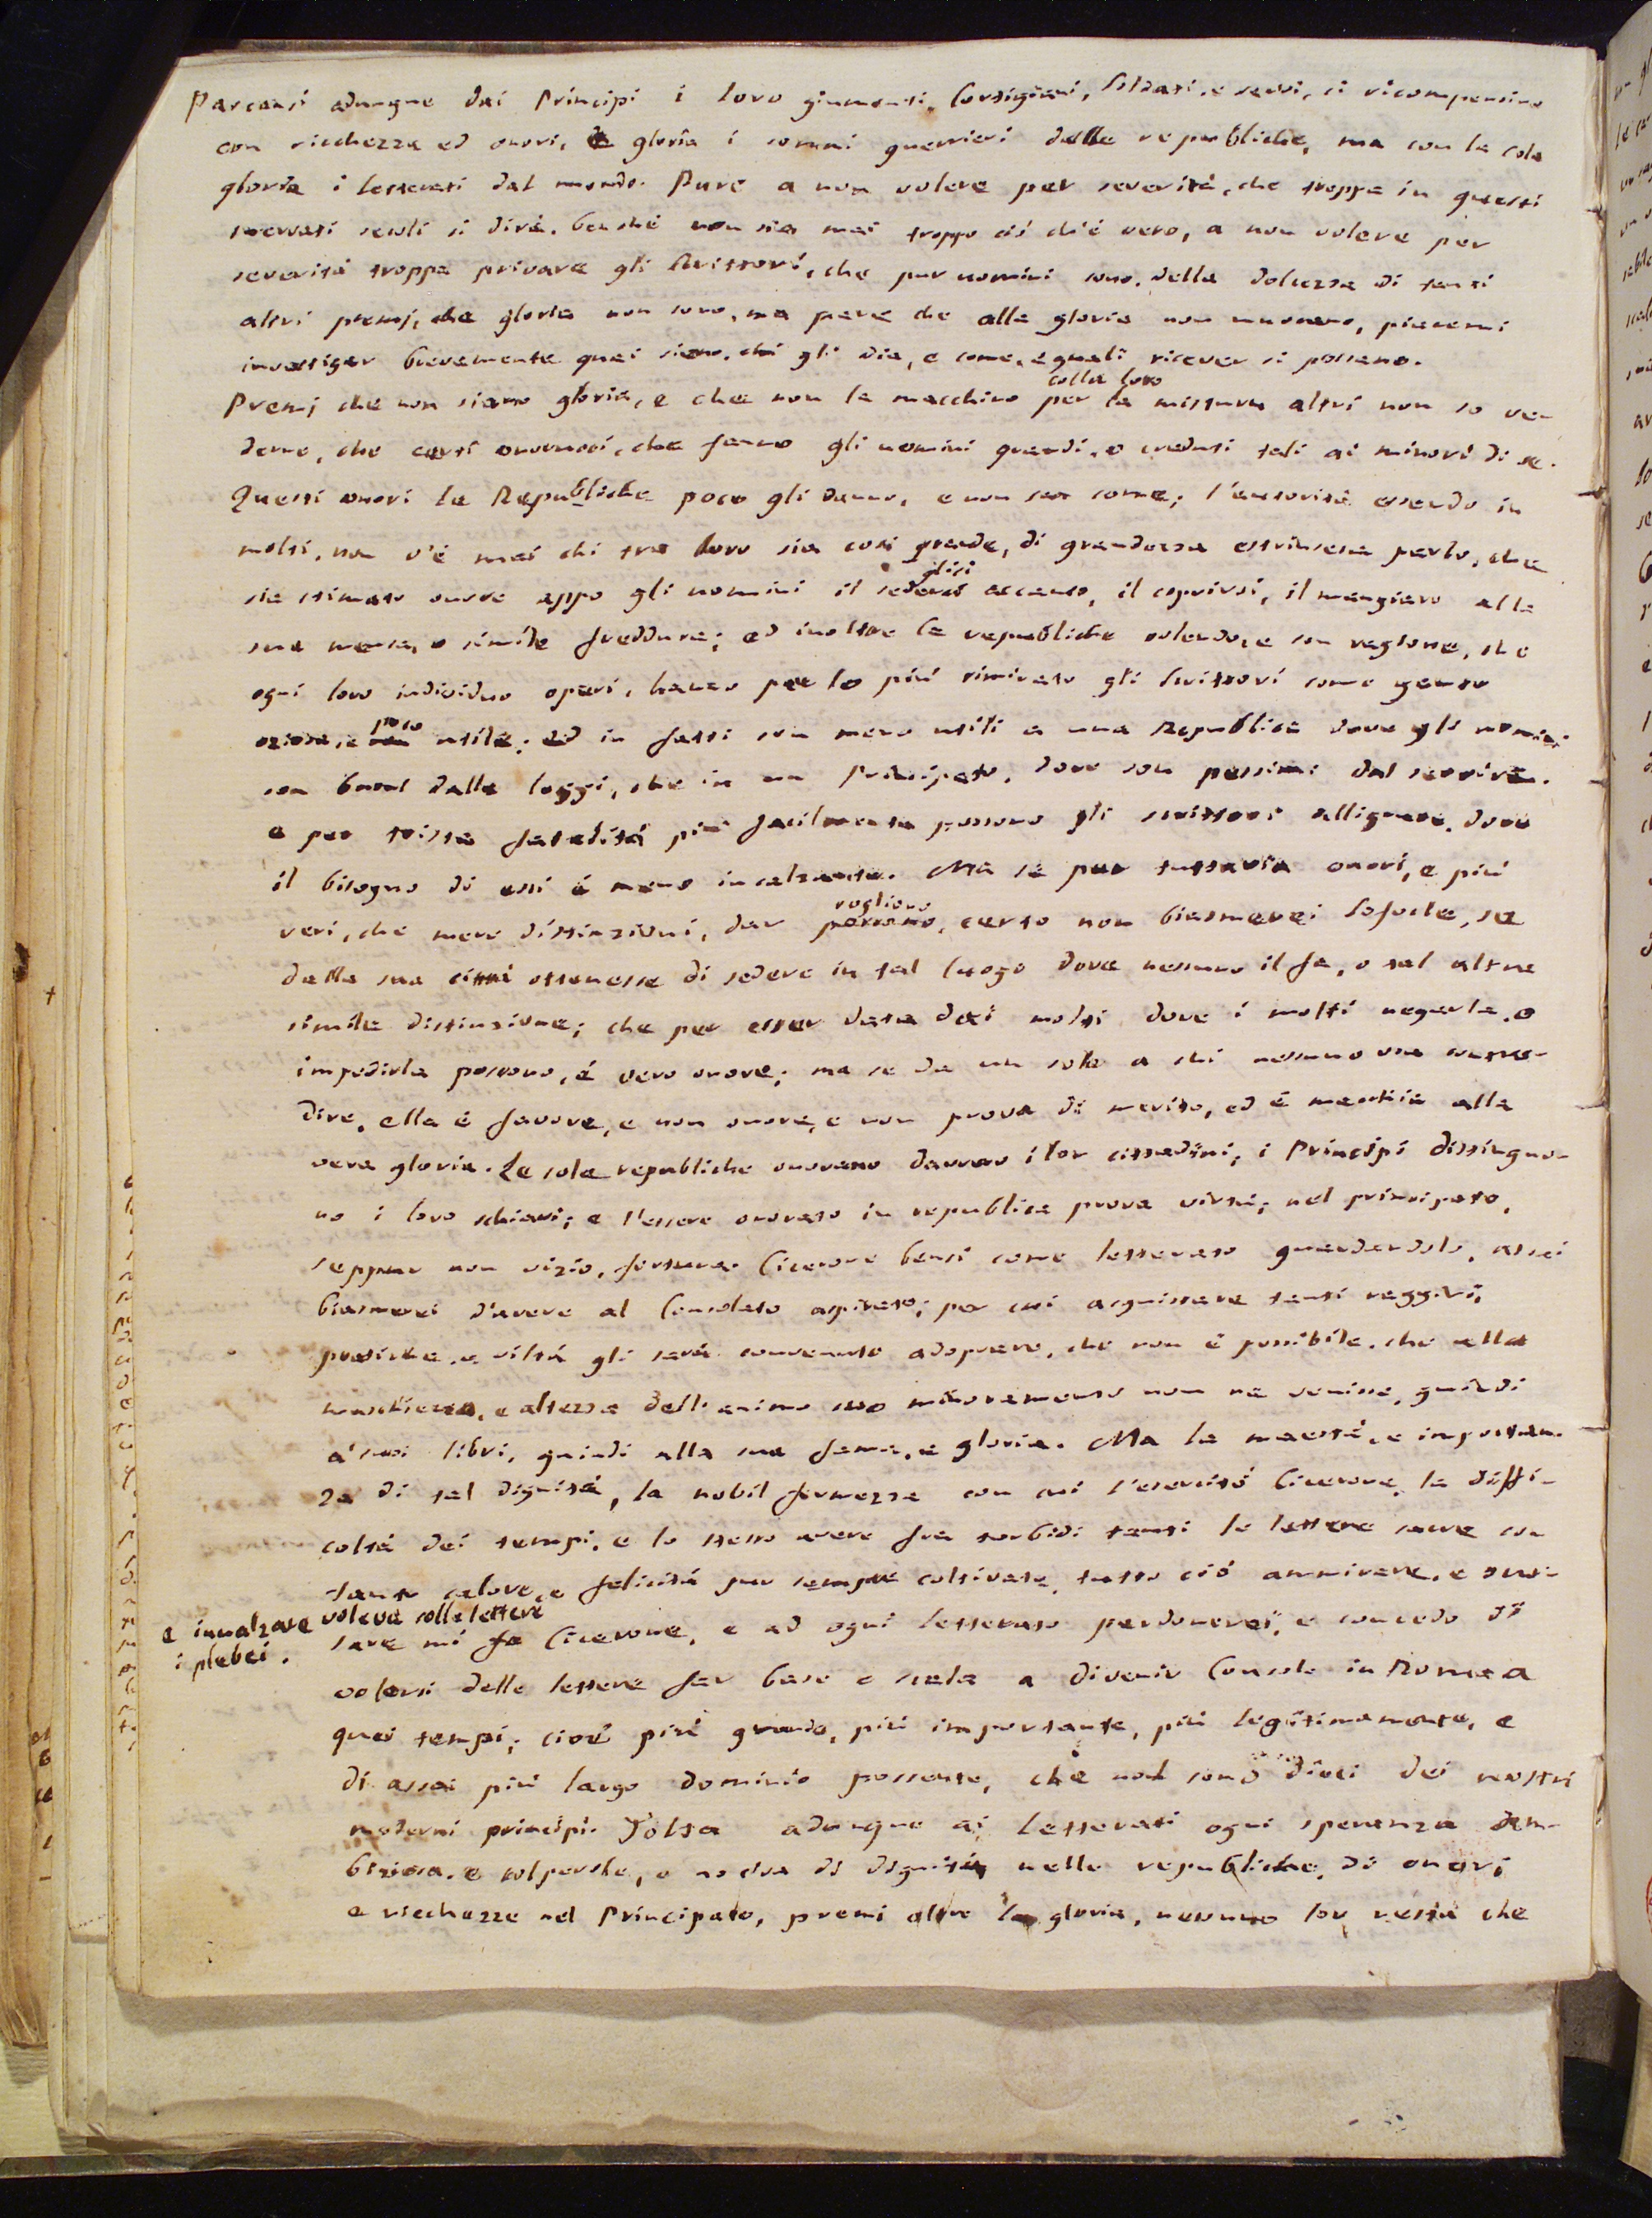 Parcansi adunque dai Principi i loro giumenti, Cortigiani, soldati, e servi, si ricompensino
con ricchezza ed onori, e gloria i sommi guerrieri dalle republiche, ma con la sola
gloria i letterati dal mondo. Pure a non volere per severità, che troppa in questi
snervati secoli si dirà, benchè non sia mai troppo ciò ch'è vero, a non volere per
severità troppa privare gli scrittori, che pur uomini sono, della dolcezza di tanti
altri premj, che gloria non sono, ma pare che alla gloria non nuocano, piacemi
investigar brevemente quai sieno, chi gli dia, e come, e quali ricever si possano.
Premj che non siano gloria, e che non la macchino per la mistura colla loro altri non so ve-
derne, che certi onorucci, che fanno gli uomini grandi, o creduti tali ai minori di se.
Questi onori le Republiche poco gli danno, e non san come; l'autorità essendo in
molti, non v'è mai chi tra loro sia così grande, di grandezza estrinseca parlo, che
sia stimato onore appo gli uomini il sedergli accanto, il coprirsi, il mangiare alla
sua mensa, o simile freddura; ed inoltre le republiche volendo, e con ragione, che
ogni loro individuo operi, hanno per lo più rimirato gli scrittori come gente
oziosa, e poco utile; ed in fatti son meno utili a una Republica dove gli uomini
son buoni dalle leggi, che in un Principato, dove son pessimi dal servire.
e per trista fatalità più facilmente possono gli scrittori allignare, dove
il bisogno di essi è meno incalzante. Ma se pur tuttavia onori, e più
veri, che mere distinzioni, dar vogliono, certo non biasmerei Sofocle, se
dalla sua città ottenesse di sedere in tal luogo dove nessuno il fa, o tal altra
simile distinzione; che per esser data dai molti dove i molti negarla, o
impedirla possono, è vero onore; ma se da un solo a cui nessuno osa contra-
dire, ella è favore, e non onore, e non prova di merito, ed è macchia alla
vera gloria. Le sole republiche onorano davvero i lor cittadini; i Principi distinguo-
no i loro schiavi; e l'essere onorato in republica prova virtù; nel principato,
seppur non vizio, fortuna. Cicerone bensì come letterato guardandolo, assai
biasmerei d'avere al Consolato aspirato; per cui acquistare tanti raggiri,
pratiche, e viltà gli sarà convenuto adoprare, che non è possibile, che alla
maschiezza, e altezza dell'animo suo minoramento non ne venisse, quindi
a' suoi libri, quindi alla sua fama, e gloria. Ma la maestà, e importan-
za di tal dignità, la nobil fermezza con cui l'esercitò Cicerone, la diffi-
coltà dei tempi, e lo stesso avere fra torbidi tanti le lettere sacre con
tanto calore, e felicità pur sempre coltivate, tutto ciò ammirare, e scu-
sare mi fa Cicerone, e ad ogni letterato perdonerei, e concedo di
e innalzare voleva colle lettere
i plebei.
volersi delle lettere far base e scala a divenir Console in Roma a
quei tempi; cioè più grande, più importante, più legittimamente, e
di assai più largo dominio possente, che non sono dieci dei nostri
moderni principi. Tolta adunque ai letterati ogni speranza am-
biziosa, e colpevole, o nociva di dignità nelle republiche, di onori
e ricchezze nel Principato, premi altro la gloria, nessuno lor resta che